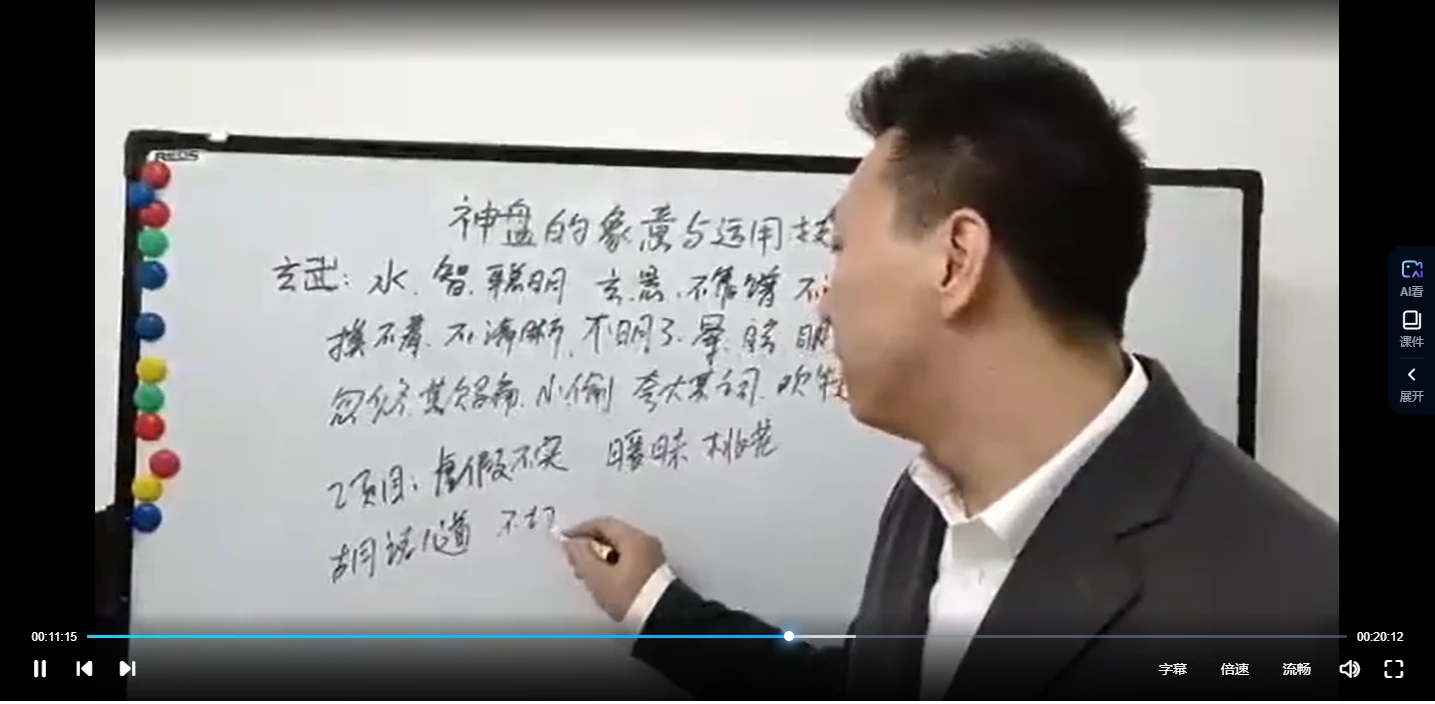 神盘的象意与运用技
玄武:水.智.聪明 玄.晕.不靠谱 不
摸不着.不清晰.不明了.晕.眩
忽悠 小偷 夸大其词.吹牛
项目:虚假不实 暧昧 桃花
胡说八道 不切
AI看
课件
展开
00:11:15
00:20:12
字幕 倍速 流畅